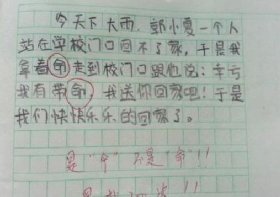 今天下大雨,郭小夏一个人
站在学校门口回不了家,于是我
拿着命走到校门口跟他说:幸亏
我有带命,我送你回家吧!于是
我们快快乐乐的回家了。
是“伞”不是“命”!!